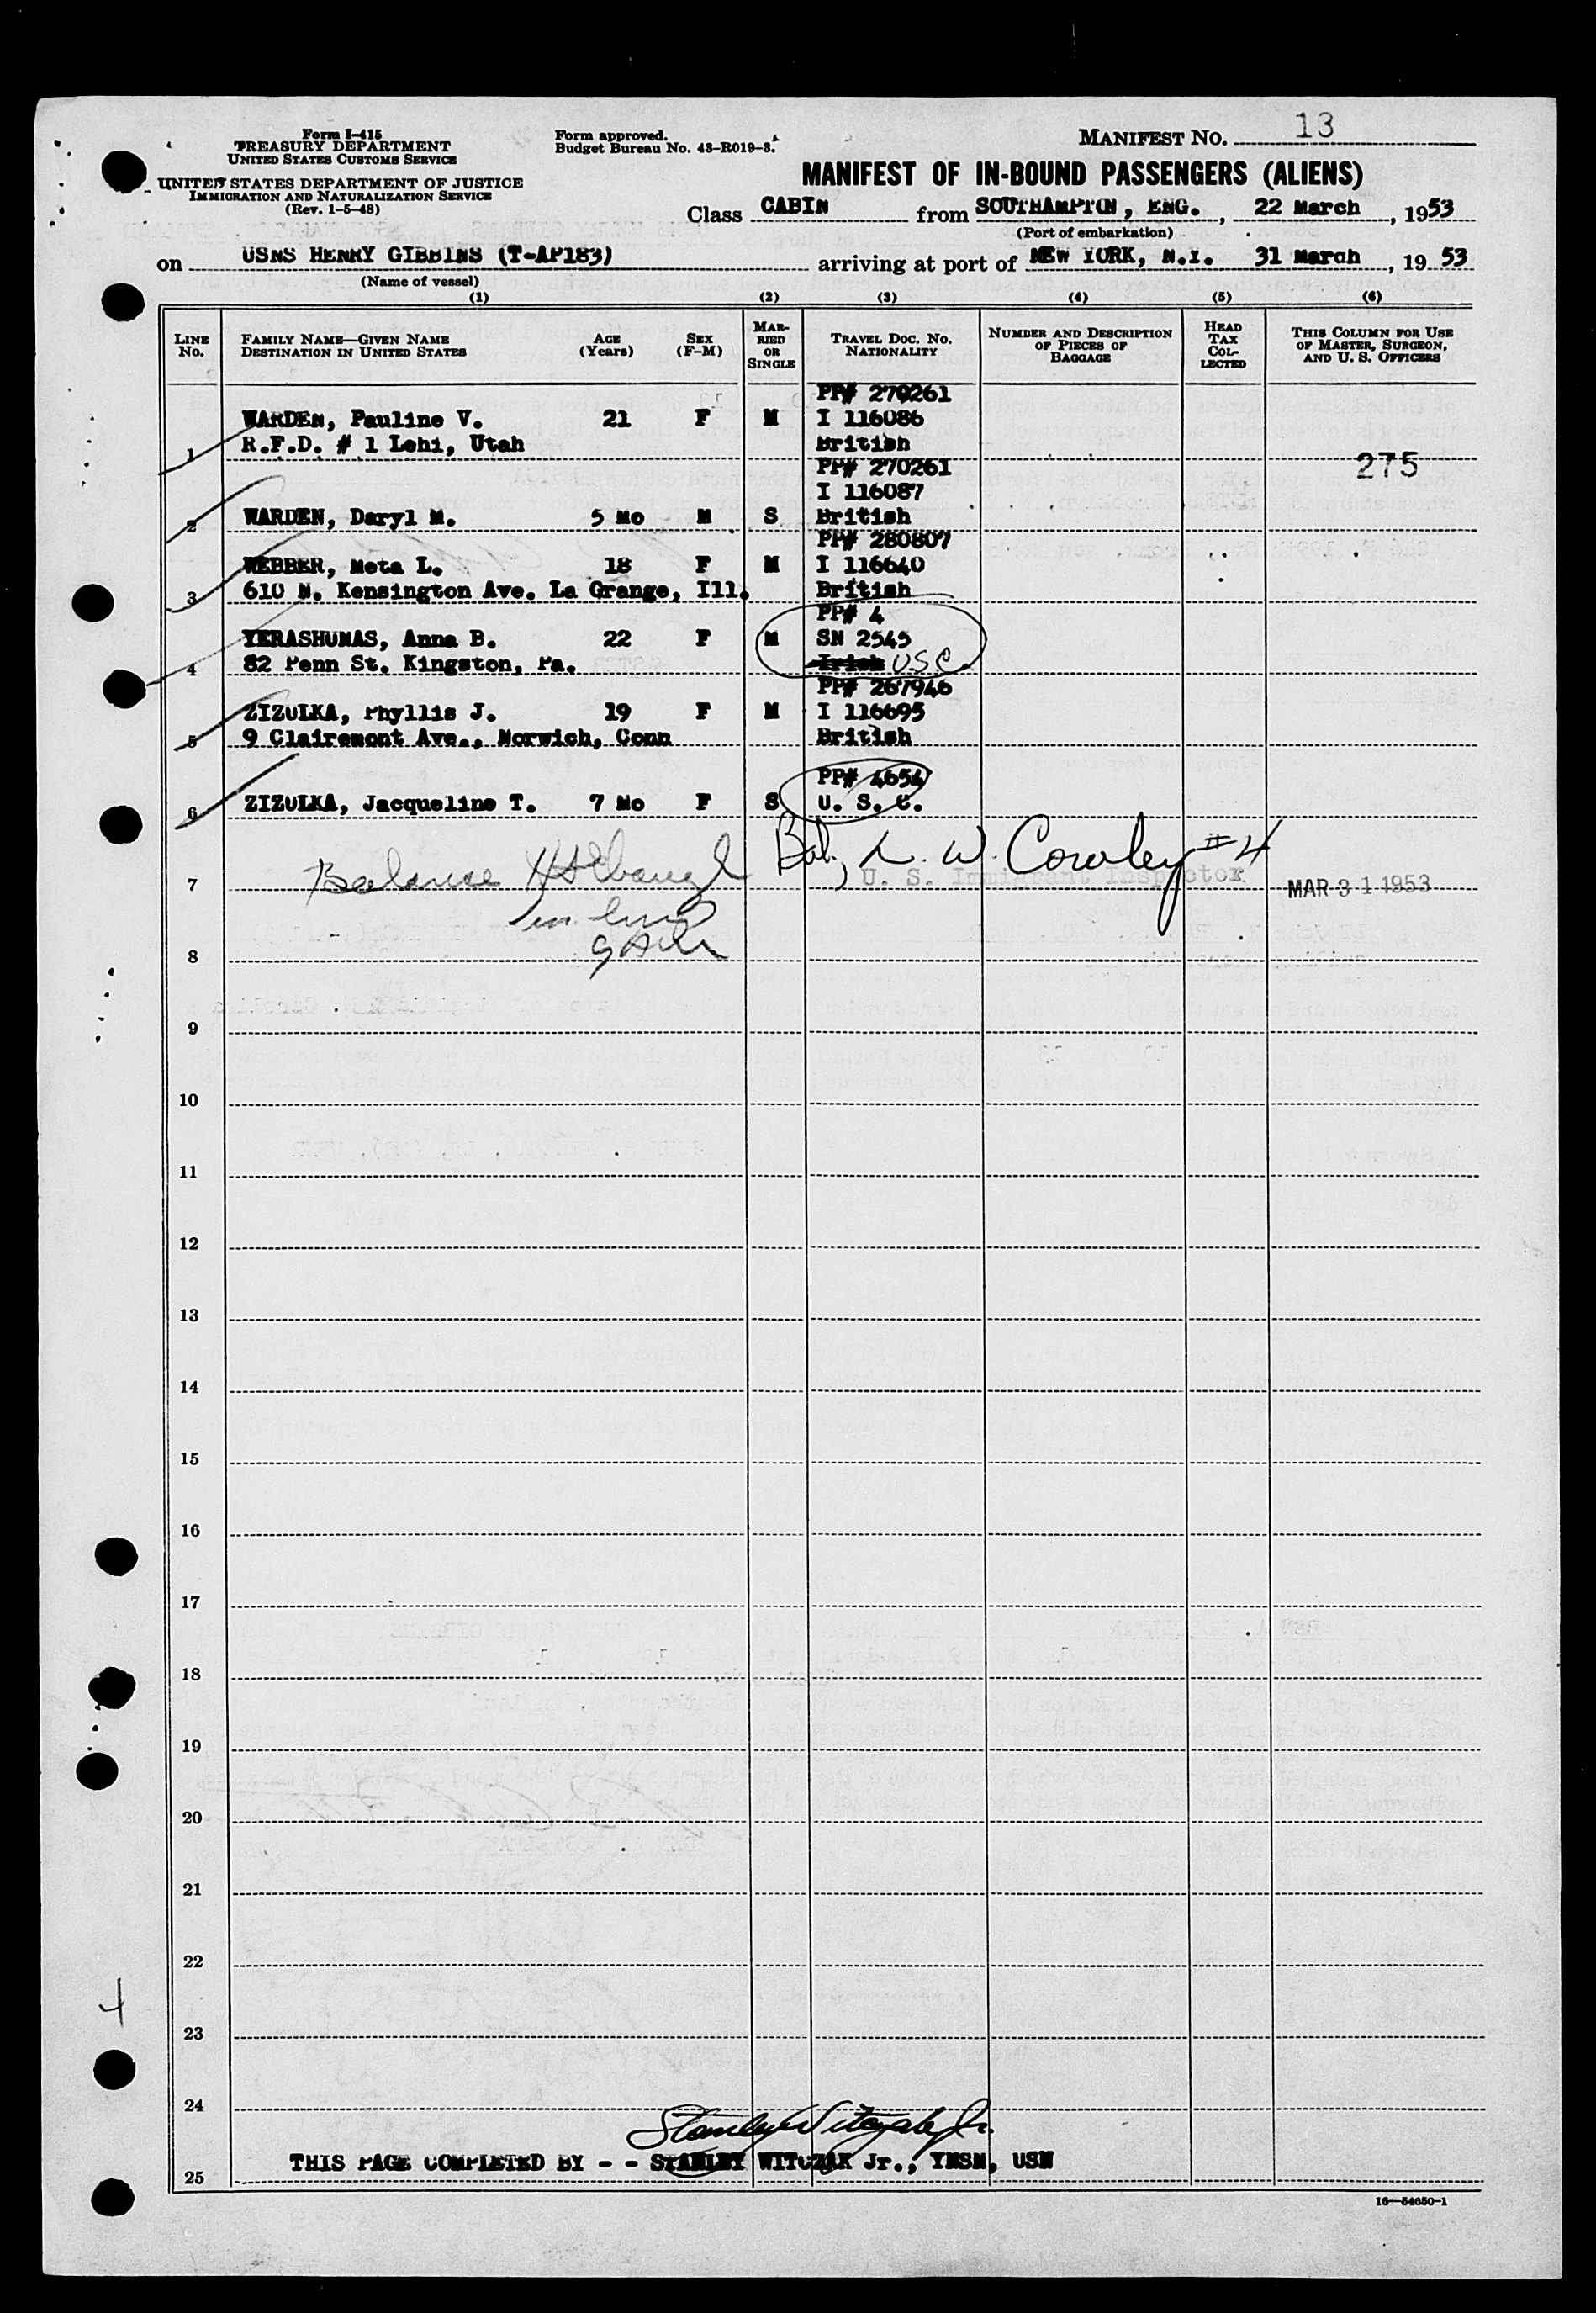 Form I-415
TREASURY DEPARTMENT
UNITED STATES CUSTOMS SERVICE
UNITED STATES DEPARTMENT OF JUSTICE
IMMIGRATION AND NATURALIZATION SERVICE
(Rev. 1-5-48)
Form approved.
Budget Bureau No. 43-R019-3.
MANIFEST NO. 13
MANIFEST OF IN-BOUND PASSENGERS (ALIENS)
Class CABIN from SOUTHAMPTON, ENG., 22 March, 1953
(Port of embarkation)
on USNS HENRY GIBBINS (T-AP183) arriving at port of NEW YORK, N.Y. 31 March, 1953
(Name of vessel)
(1) (2) (3) (4) (5) (6)
LINE No. FAMILY NAME—GIVEN NAME DESTINATION IN UNITED STATES AGE (Years) SEX (F-M) MARRIED OR SINGLE TRAVEL DOC. NO. NATIONALITY NUMBER AND DESCRIPTION OF PIECES OF BAGGAGE HEAD TAX COLLECTED THIS COLUMN FOR USE OF MASTER, SURGEON, AND U. S. OFFICERS
PP# 270261
WARDEN, Pauline V. 21 F M I 116086
1 R.F.D. # 1 Lehi, Utah British
PP# 270261 275
I 116087
2 WARDEN, Daryl M. 5 Mo M S British
PP# 280807
WEBBER, Meta L. 18 F M I 116640
3 610 N. Kensington Ave. La Grange, Ill. British
PP# 4
YERASHUNAS, Anna B. 22 F M SN 2545
4 82 Penn St. Kingston, Pa. Irish U.S.C.
PP# 267946
ZIZULKA, Phyllis J. 19 F M I 116695
5 9 Clairemont Ave., Norwich, Conn British
PP# 4654
6 ZIZULKA, Jacqueline T. 7 Mo F S U. S. C.
Bal. L. W. Cowley #4
7 Balance U. S. Immigrant Inspector MAR 31 1953
in
8
9
10
11
12
13
14
15
16
17
18
19
20
21
22
4
23
24
Stanley Witczak Jr.
THIS PAGE COMPLETED BY - - STANLEY WITCZAK Jr., YNSN, USN
25
16—54650-1